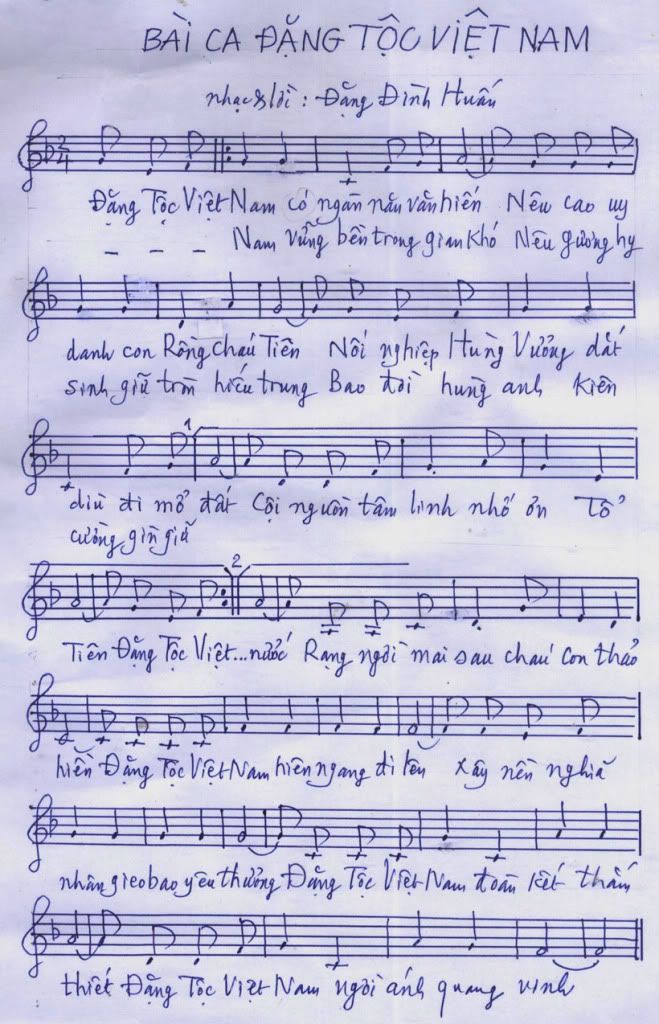 BÀI CA ĐẶNG TỘC VIỆT NAM
nhạc & lời : Đặng Đình Huấn
2/4
Đặng Tộc Việt Nam có ngàn năm văn hiến Nêu cao uy
_ _ _ Nam vững bền trong gian khó Nêu gương hy
danh con Rồng cháu Tiên Nối nghiệp Hùng Vương dắt
sinh giữ tròn hiếu trung Bao đời hùng anh kiên
1
dìu đi mở đất Cội nguồn tâm linh nhớ ơn Tổ
cường gìn giữ
2
Tiên Đặng Tộc Việt...nước Rạng ngời mai sau cháu con thảo
hiền Đặng Tộc Việt Nam hiên ngang đi lên xây nền nghĩa
nhân gieo bao yêu thương Đặng Tộc Việt Nam đoàn kết thắm
thiết Đặng Tộc Việt Nam ngời ánh quang vinh